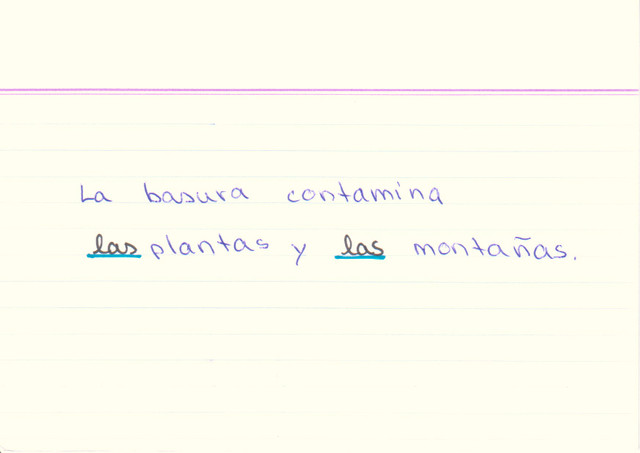 La basura contamina
las plantas y las montañas.